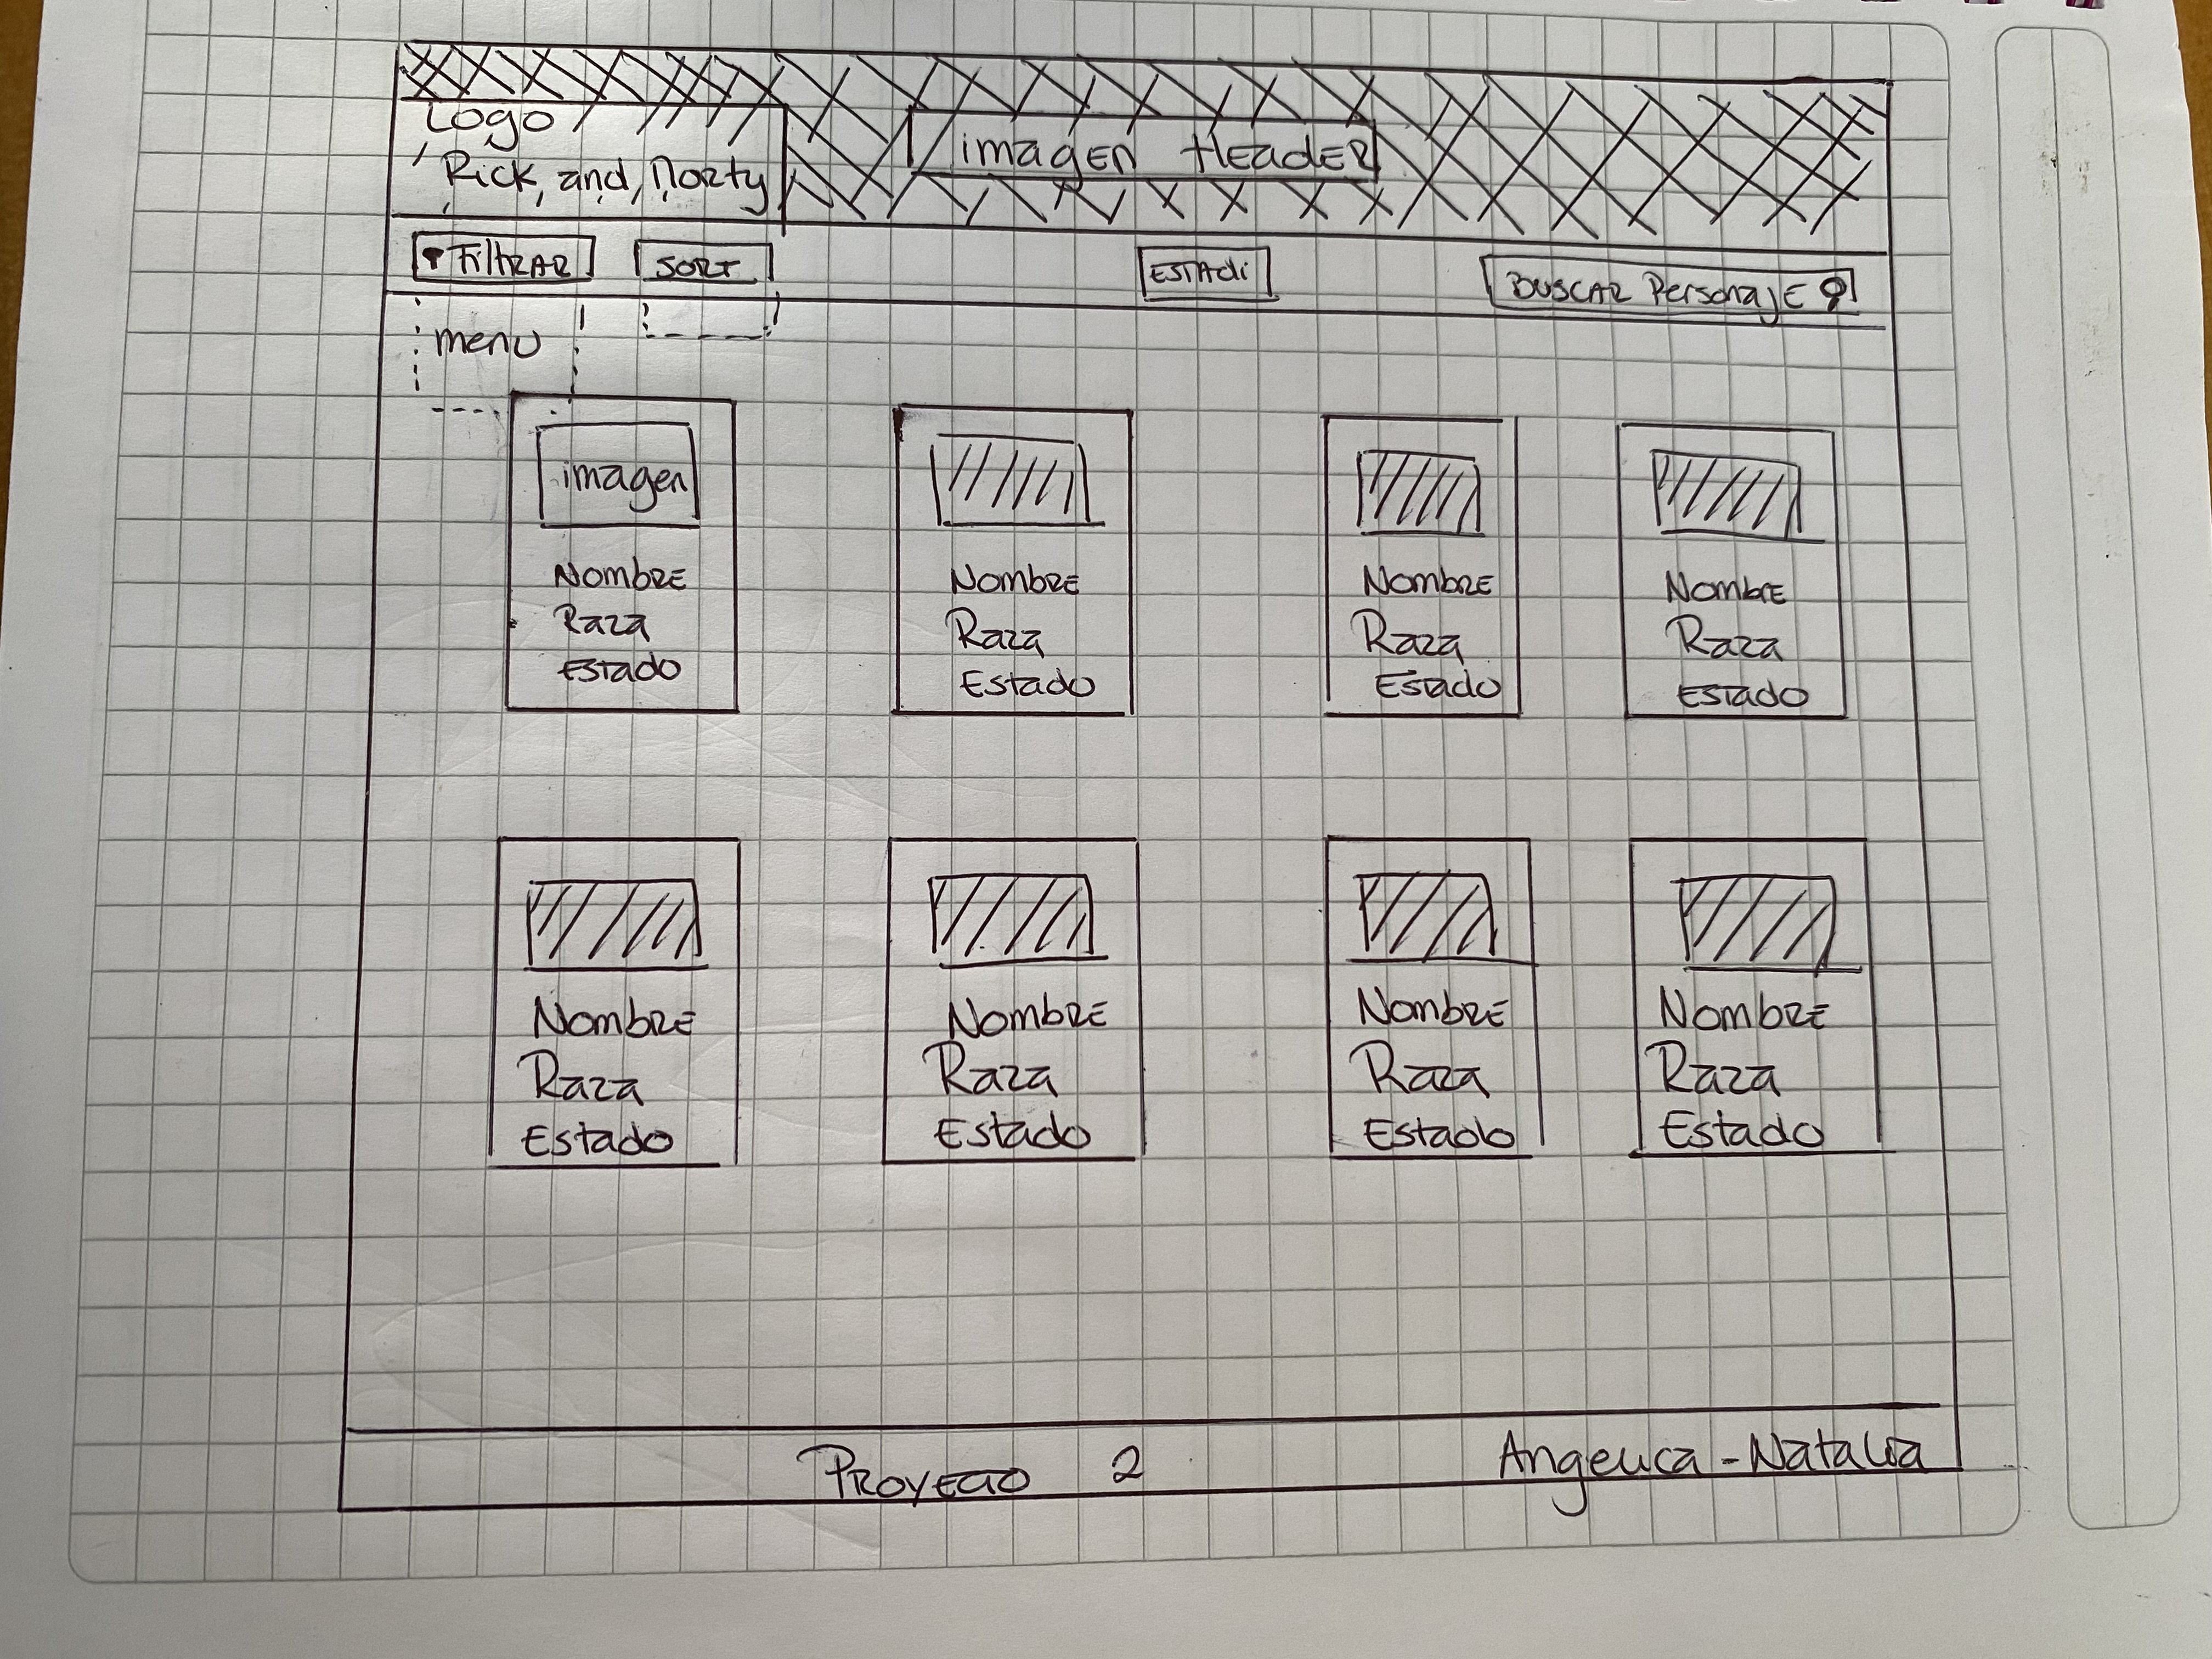 Logo
Rick and Morty
imagen Header
Filtrar
Sort
Estadi
Buscar Personaje
menu
imagen
Nombre
Raza
Estado
Nombre
Raza
Estado
Nombre
Raza
Estado
Nombre
Raza
Estado
Nombre
Raza
Estado
Nombre
Raza
Estado
Nombre
Raza
Estado
Nombre
Raza
Estado
Proyecto 2
Angelica - Natalia